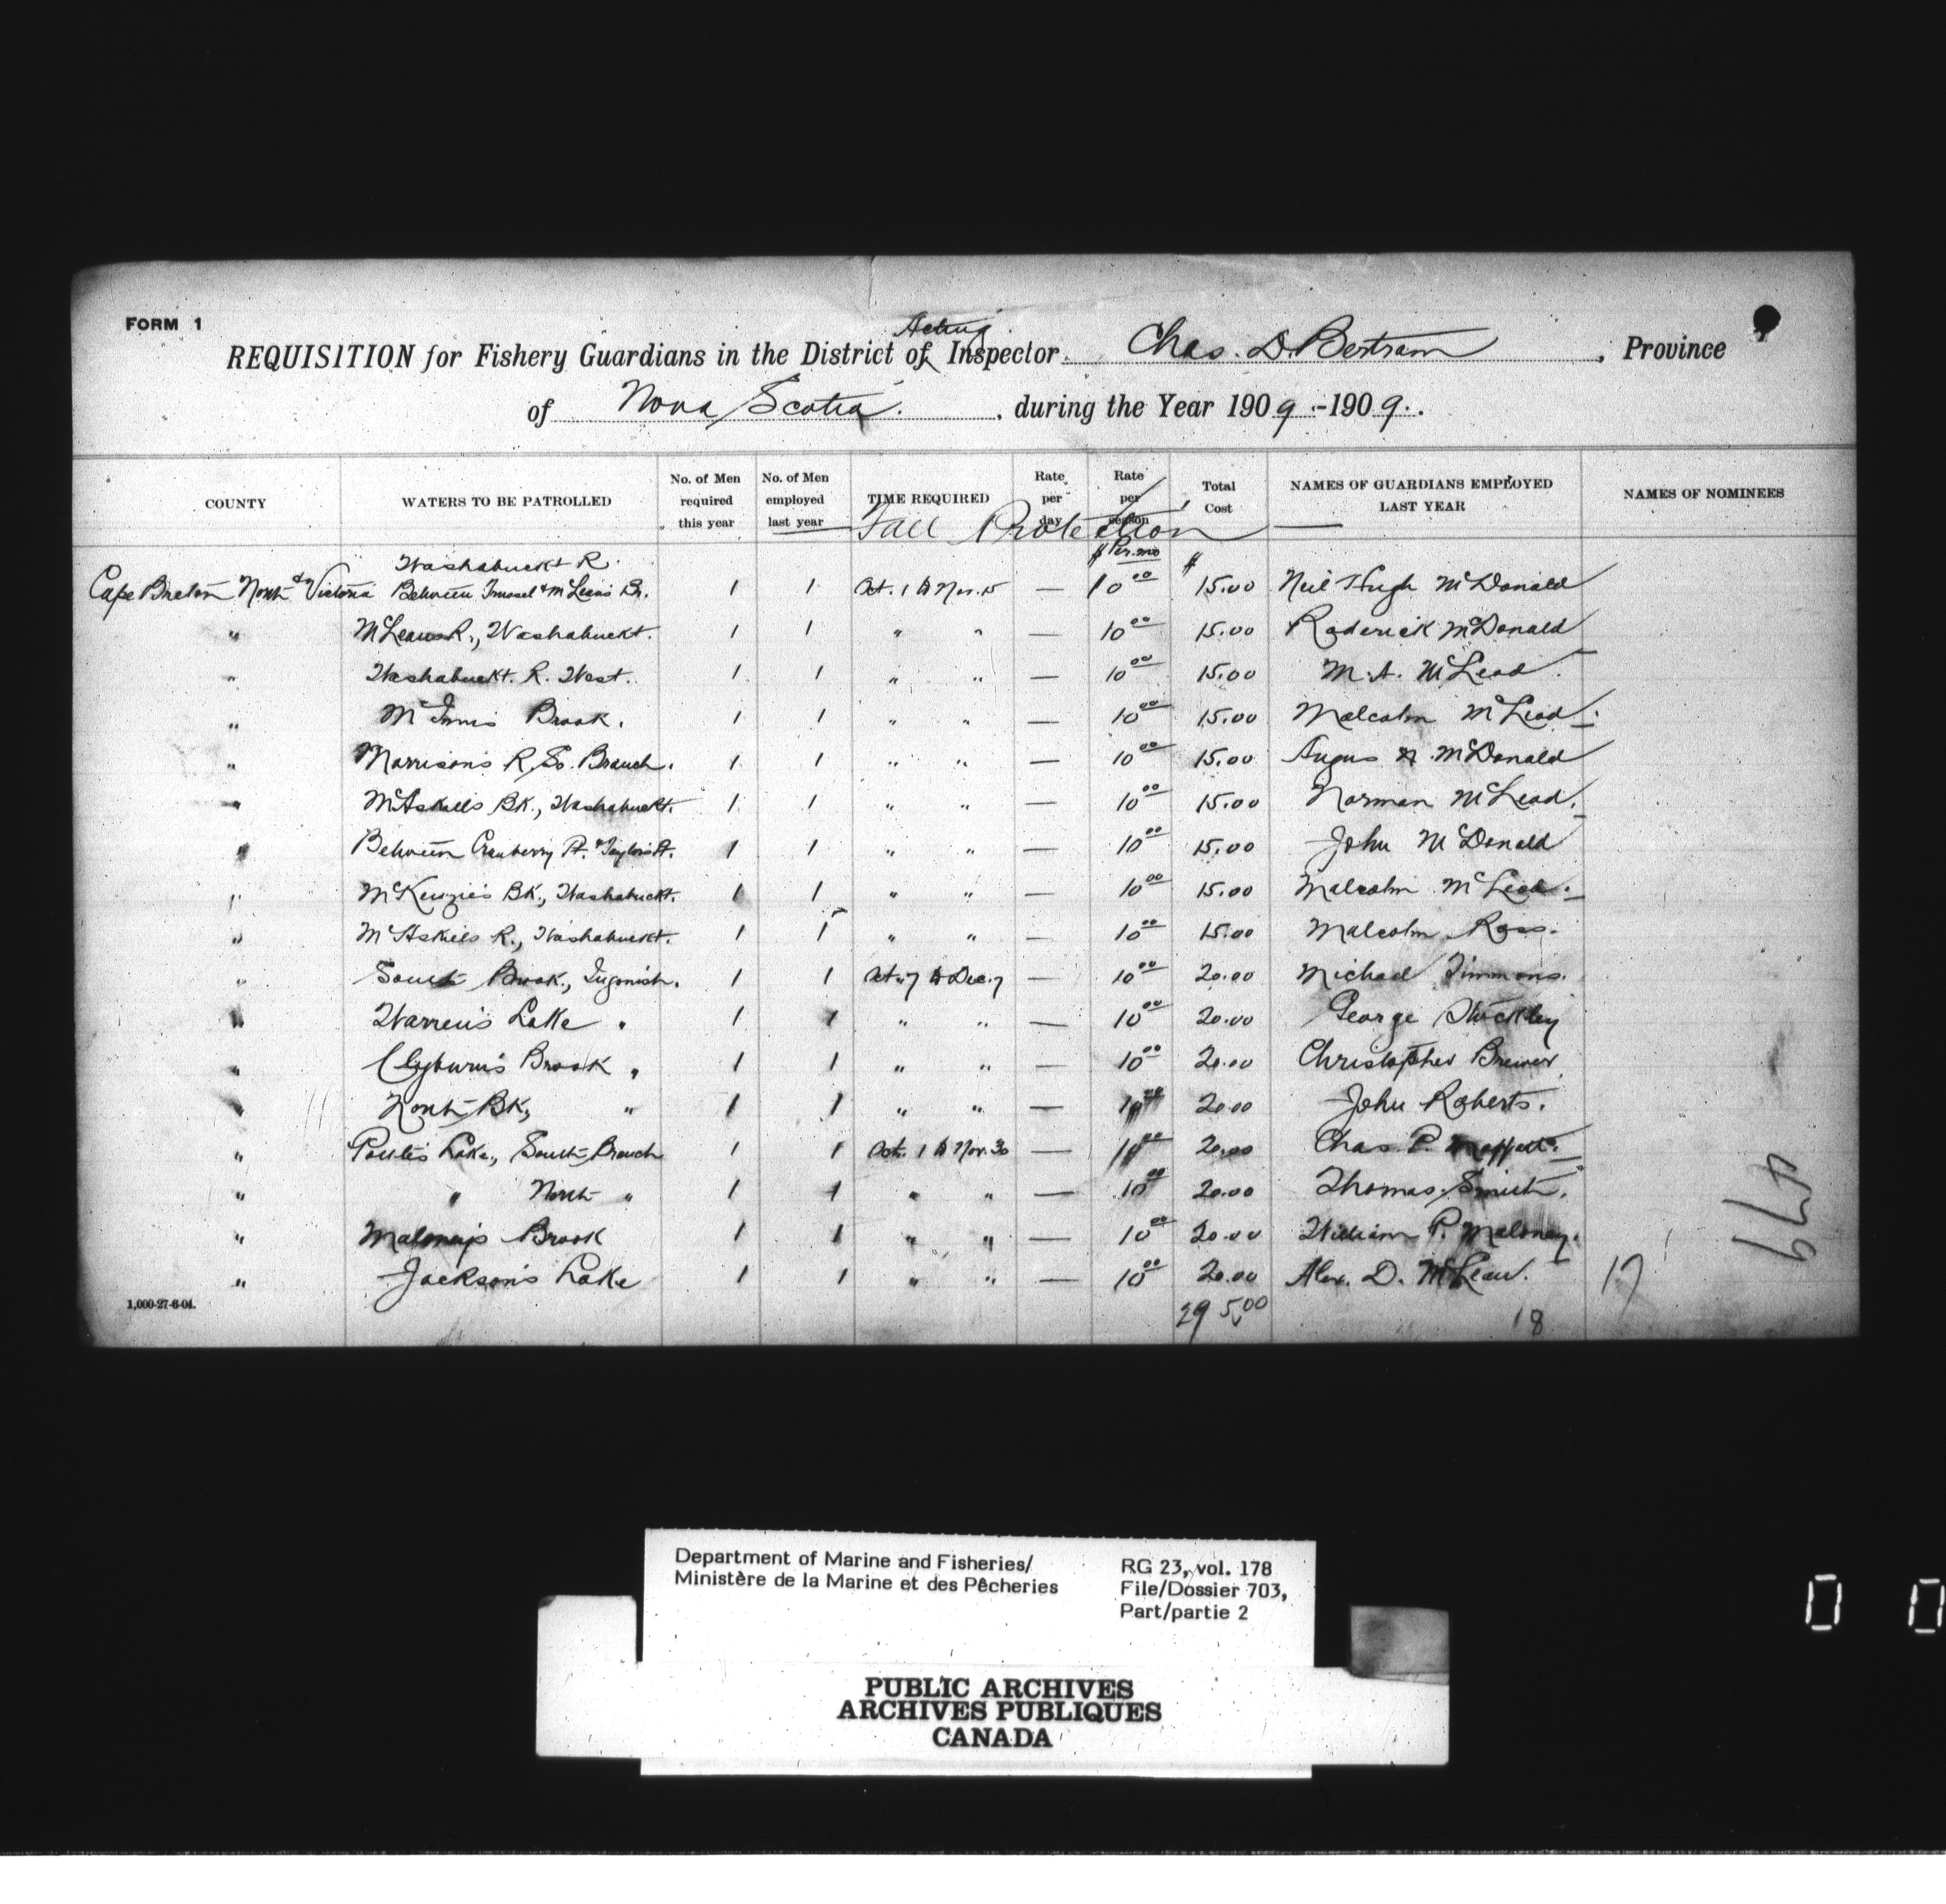 FORM 1
REQUISITION for Fishery Guardians in the District of Acting Inspector Chas. D. Bertram, Province
of Nova Scotia, during the Year 1909-1909.
COUNTY WATERS TO BE PATROLLED No. of Men required this year No. of Men employed last year TIME REQUIRED Rate per day Rate per season Total Cost NAMES OF GUARDIANS EMPLOYED LAST YEAR NAMES OF NOMINEES
Fall Protection
Washabuckt R. $ Per. mo $
Cape Breton North & Victoria Between & McLean's Br. 1 1 Oct. 1 to Nov. 15 — 10 00 15.00 Neil Hugh McDonald
" McLeans R., Washabuckt. 1 1 " " — 10 00 15.00 Roderick McDonald
" Washabuckt. R. West. 1 1 " " — 10 00 15.00 M. A. McLeod.
" McInnis Brook. 1 1 " " — 10 00 15.00 Malcolm McLeod.
" Morrison's R, So. Branch. 1 1 " " — 10 00 15.00 Angus N. McDonald
" McAskills Bk., Washabuckt. 1 1 " " — 10 00 15.00 Norman McLeod.
" Between Cranberry Pt. & Taylors Pt. 1 1 " " — 10 00 15.00 John McDonald
" McKenzie's Bk., Washabuckt. 1 1 " " — 10 00 15.00 Malcolm McLeod.
" McAskils R., Washabuckt. 1 1 " " — 10 00 15.00 Malcolm Ross.
" South Brook., Ingonish. 1 1 Oct. 7 to Dec. 7 — 10 00 20.00 Michael Timmons.
" Warren's Lake " 1 1 " " — 10 00 20.00 George Stuckley
" Clyburn's Brook " 1 1 " " — 10 00 20.00 Christopher Brewer
" North Bk, " 1 1 " " — 10 00 20.00 John Roberts.
" Pottle's Lake., South Branch 1 1 Oct. 1 to Nov. 30 — 10 00 20.00 Chas. P. Moffatt.
" " North " 1 1 " " — 10 00 20.00 Thomas Smith.
" Maloney's Brook 1 1 " " — 10 00 20.00 William P. Maloney.
" Jackson's Lake 1 1 " " — 10 00 20.00 Alex. D. McLean. 17
1,000-27-6-04. 295.00 18
479
Department of Marine and Fisheries/
Ministère de la Marine et des Pêcheries
RG 23, vol. 178
File/Dossier 703,
Part/partie 2
PUBLIC ARCHIVES
ARCHIVES PUBLIQUES
CANADA
0 0